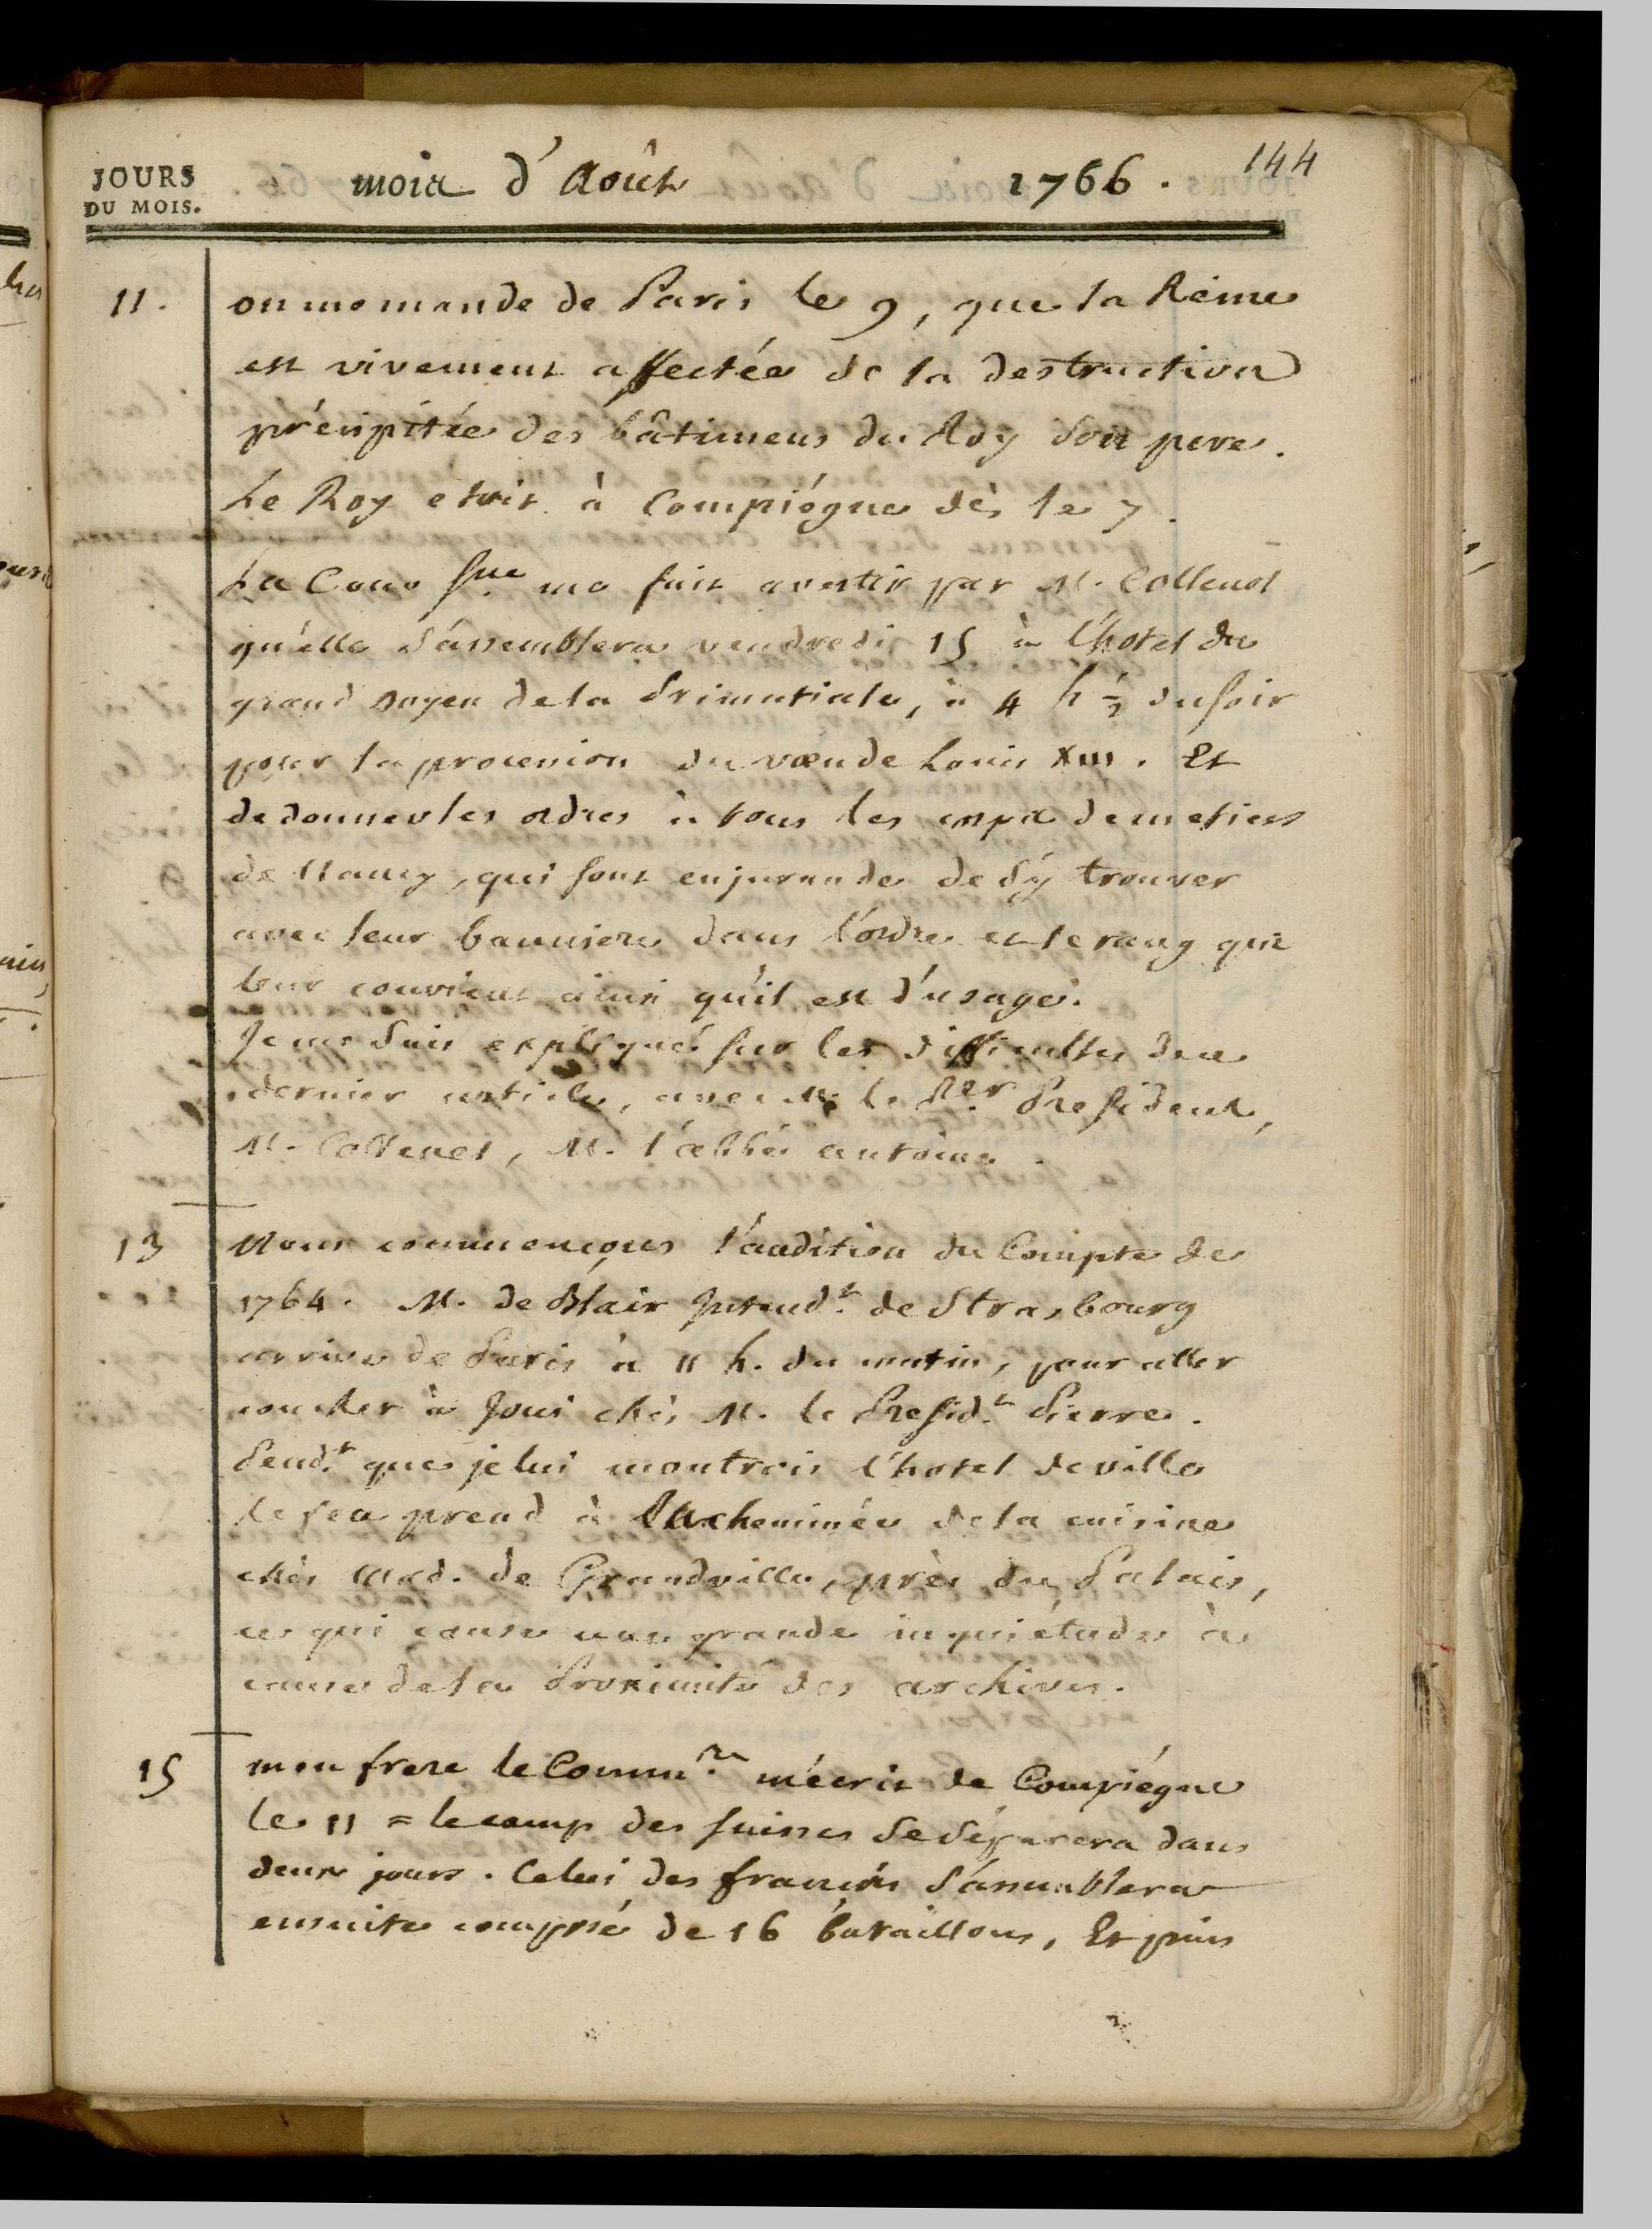 144
JOURS
DU MOIS.
mois d'Août 1766.
11. on me mande de Paris le 9, que la Reine
est vivement affectée de la destruction
précipitée des bâtimens du Roy Son pere.
Le Roy etoit à Compiégne dès le 7.
La Cour sne me fait avertir par M. Collenel
qu'elle S'assemblera vendredi 15 à l'hotel du
grand Doyen de la Primatiale, à 4 h ½ du soir
pour la procession du vœu de Louis XIII. Et
de donner les ordres à tous les corps de metiers
de Nancy, qui sont en jurande de S'y trouver
avec leur banniere dans l'ordre et le rang qui
leur convient ainsi qu'il est d'usage.
Je me Suis expliqué sur les difficultés de ce
dernier article, avec M. le Per President,
M. Collenel, M. l'abbé antoine.
13 Nous commençons l'audition du Compte de
1764. M. de Blair Intendt. de Strasbourg
arrive de Paris à 11 h. du matin, pour aller
coucher à Joui chés M. le Presidt. Pierre.
Pendt. que je lui montrois l'hotel de ville
le feu prend à la cheminée de la cuisine
chés Mad. de Grandville, près du Palais,
ce qui cause une grande inquiétude à
cause de la Proximité des archives.
15 mon frere le Commre. m'écrit de Compiégne
le 11 = le camp des suisses Se Séparera dans
deux jours. Celui des françois S'assemblera
ensuite composé de 16 bataillons, Et puis